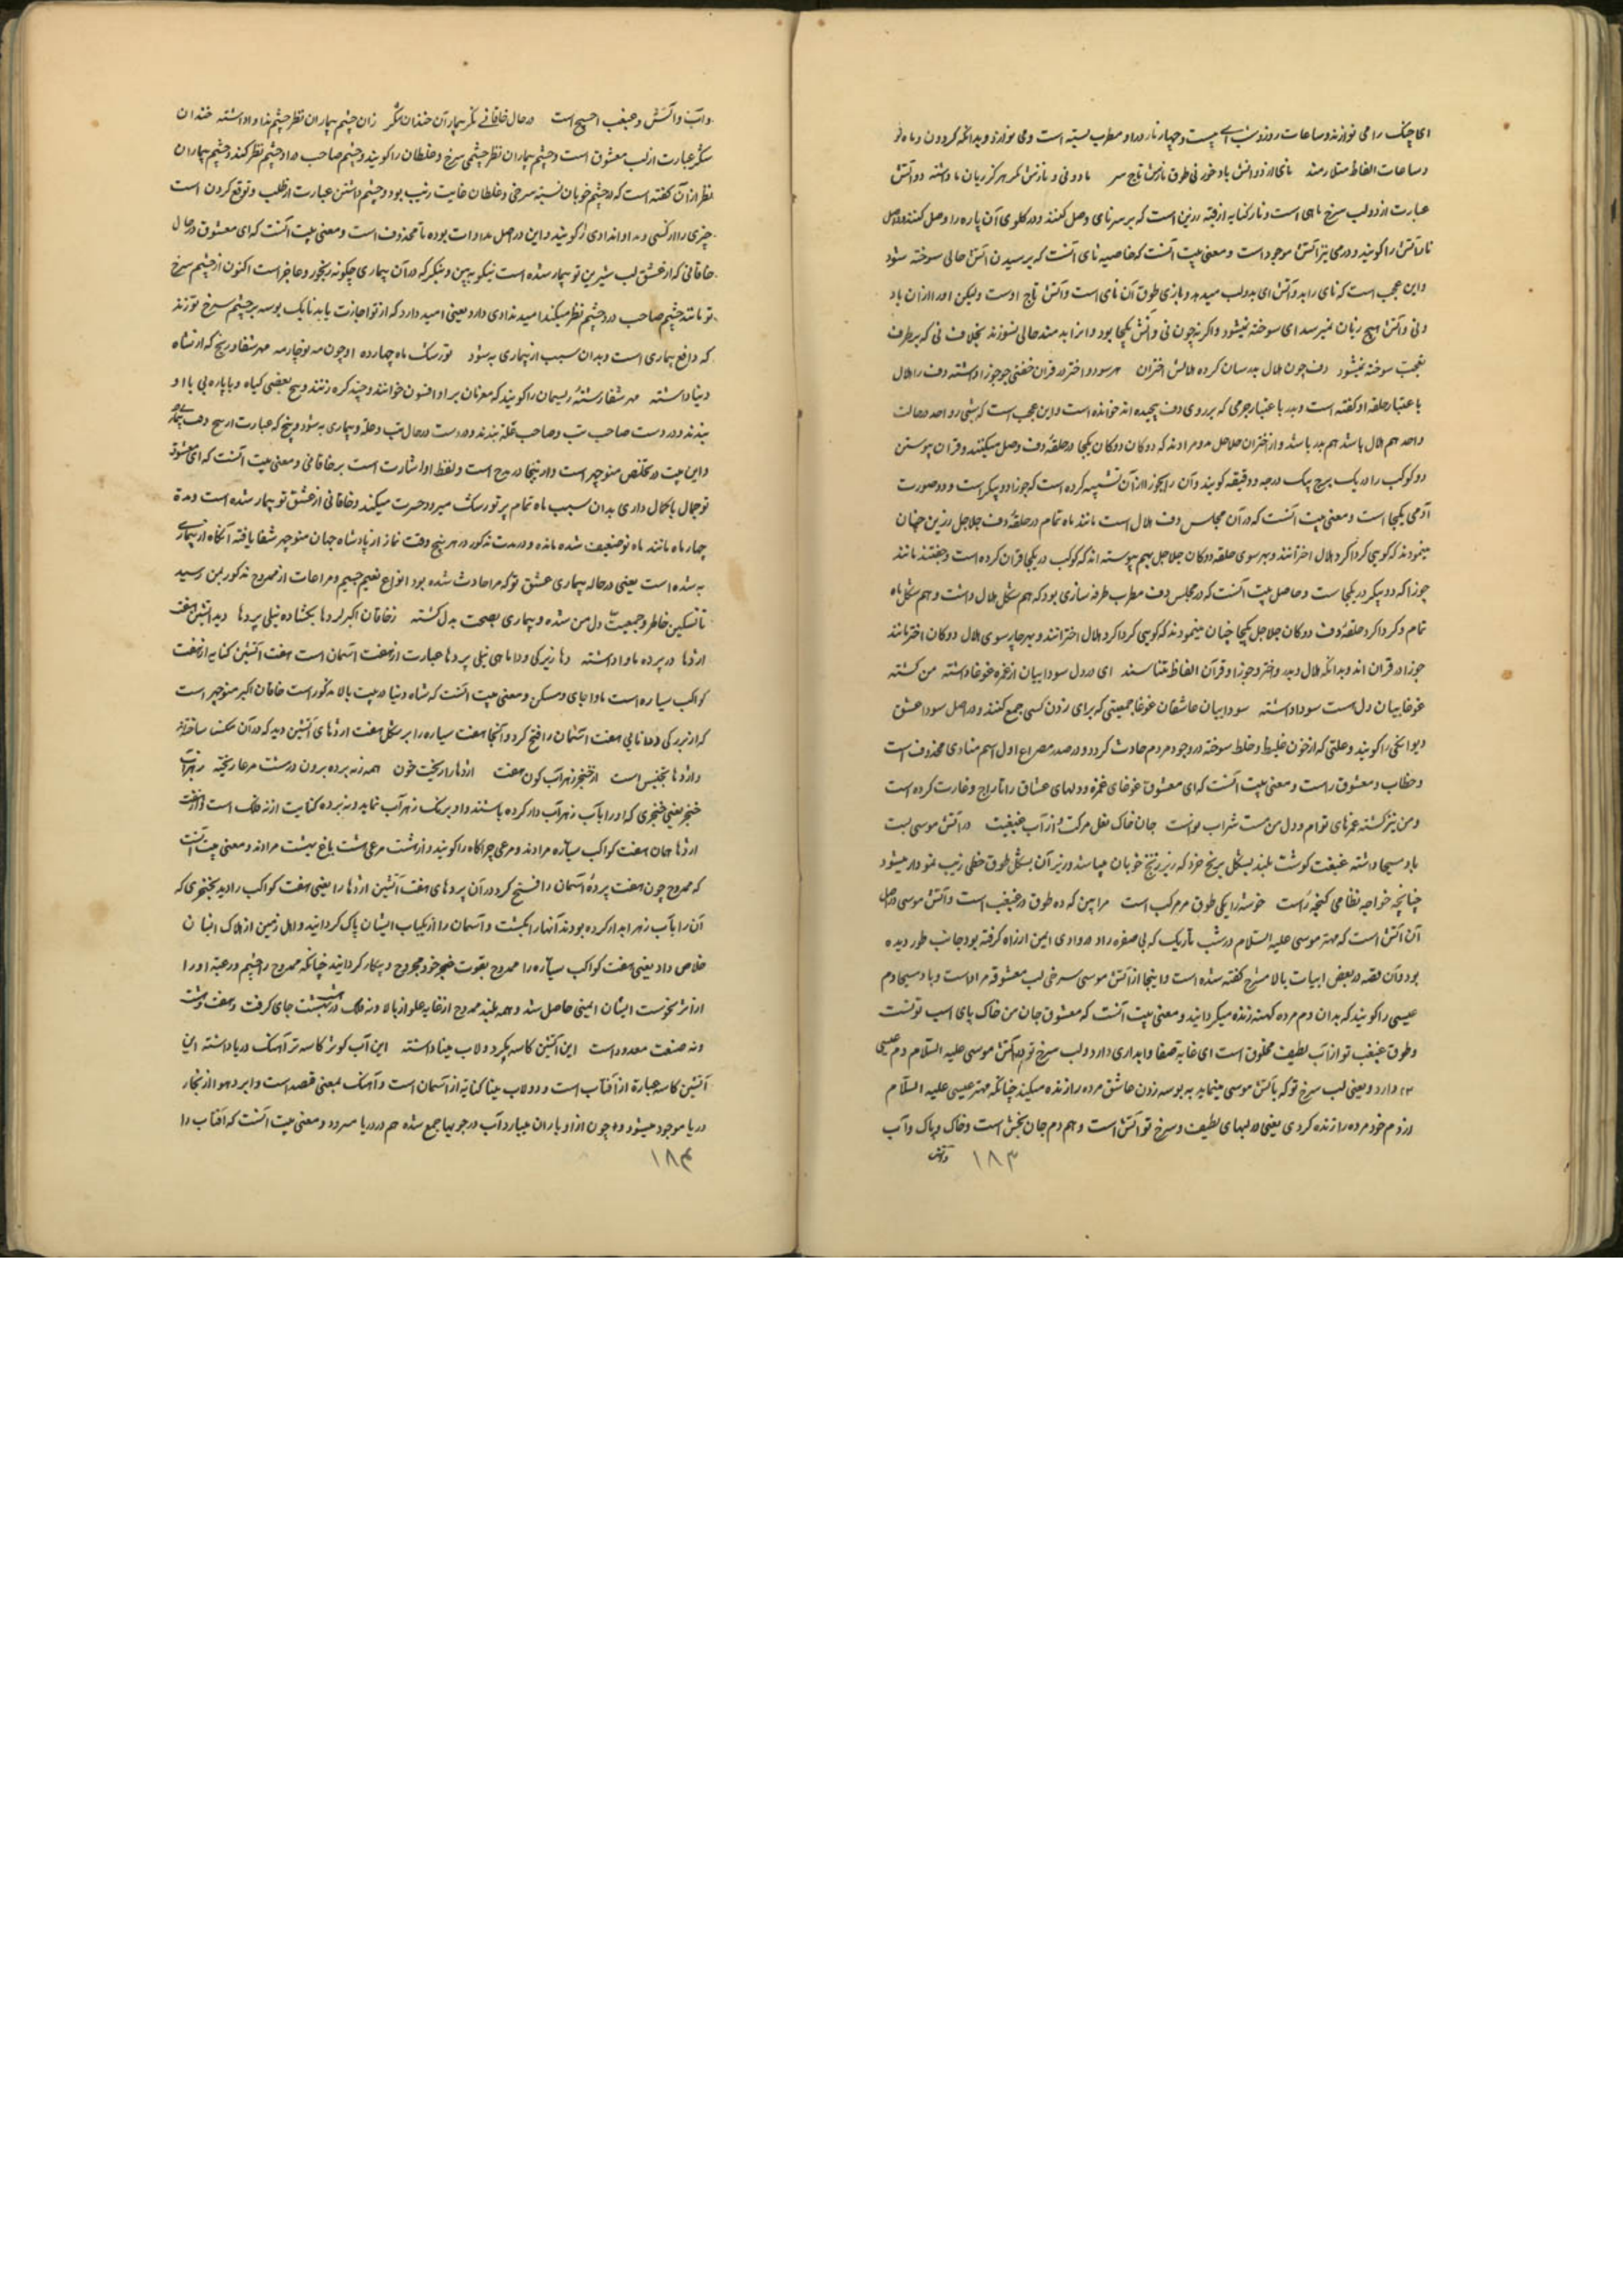 ای چنک را می نوازند و ساعات روز و شب بیست و چهار تار دراو مطرب بسته است و می نوازد و بدانکه کردون و ماه نو
و ساعات الفاظ متلازمند نای از دو آتش باد خور نی طوق نارش تاج سر باد و نی و نارش هر کز زیان نا داشته دو آتش
عبارت از دو لب سرخ نای است و نار کنایه از رنین است که بر سر نای وصل کنند و در کلوی آن پاره را وصل کنند و در اصل
نار آتش را کویند و در می نیز آتش موجود است و معنی بیت آنست که خاصیه نای آنست که برسیدن آتش حالی سوخته شود
و این عجب است که نای را بدو آتش ای بدو لب میدهد و نازی طوق آن نای است و آتش تاج اوست ولیکن او را از آن باد
و نی و آتش هیچ زیان نمیرسد ای سوخته نمیشود و اکرنه چون نی و آتش یکجا بود حالی بسوزند بخلاف نی که بر طرف
تعجب سوخته نمیشود دف چون هلال بدر سان کرده هلالش اختران هر سو دو اختر در قران جوزا داشته دف را هلال
با عتبار حلقه او کفته است و بدر با عتبار چرمی که بر روی دف پیچیده اند خوانده است و این عجب است که شی واحد در حالت
واحد هم هلال باشد هم بدر باشد و از اختران جلاجل مرادند که دوکان دوکان یکجا در حلقهٔ دف وصل میکنند و قران پیوستن
دو کوکب را در یک برج بیک درجه و دقیقه کویند و آن را بجوزا از آن تشبیه کرده است که جوزا دو پیکر است و دو صورت
آدمی یکجا است و معنی بیت آنست که در آن مجلس دف هلال است مانند ماه تمام در حلقهٔ دف جلاجل زرین چنان
مینمودند که کویی کرداکرد هلال اخترانند و بهر سوی حلقه دوکان جلاجل بهم پیوسته اند که کوکب در یکجا قران کرده است و جفتند مانند
جوزا که دو پیکر در یکجاست و حاصل بیت آنست که در مجلس دف مطرب طرفه سازی بود که هم شکل هلال داشت و هم شکل ماه
تمام و کرداکرد حلقهٔ دف دوکان جلاجل یکجا چنان مینمودند که کویی کرداکرد هلال اخترانند و بهر چار سوی هلال دوکان اختر مانند
جوزا در قران اند و بدانکه هلال و بدر و اختر و جوزا و قرآن الفاظ متناسبند ای در دل سوداییان از غمزه غوغا داشته من کشته
غوغاییان دل مست سودا داشته سوداییان عاشقان غوغا جمعیتی که برای زدن کسی جمع کنند و در اصل سودا عشق
و دیوانکی را کویند و علتی که از خون غلیظ و خلط سوخته در وجود مردم حادث کردد و در صدر مصراع اول اسم منادی محذوف است
و خطاب و معشوق راست و معنی بیت آنست که ای معشوق غوغای غمزه و دلهای عشاق را تاراج و غارت کرده است
و من نیز کشته غمزهای توام و دل من مست شراب هواست جان خاک نعل مرکبت از آب غبغبت در آتش موسی لبت
باد مسیحا داشته غبغبت کوشت بلند بشکل ترنج خرد که زیر زنخ خوبان میباشد و زیر آن بشکل طوق خطی زیب نمودار میشود
چنانچه خواجه نظامی کنجه راست خوشه را یکی طوق مرمر کب است مرا بین که ده طوق در غبغب است و آتش موسی در اصل
آن آتش است که مهتر موسی علیه السلام در شب تاریک که بی صفوره را در وادی ایمن از راه کرفته بود جانب طور دیده
بود و آن قصه در بعض ابیات بالا مشرح کفته شده است و اینجا از آتش موسی سرخی لب معشوقه مراد است و باد مسیحا دم
عیسی را کویند که بدان دم مرده کهنه زنده میکردانید و معنی بیت آنست که معشوق جان من خاک پای اسب تونست
و طوق غبغب تو از آب لطیف مخلوق است ای غایة صفا و ابداری دارد و لب سرخ تو در آتش موسی علیه السلام دم عیسی
دارد و یعنی لب سرخ تو که بآتش موسی مینماید به بوسه زدن عاشق مرده را زنده میکند چنانکه مهتر عیسی علیه السلام
از دم خود مرده را زنده کردی یعنی در لبهای لطیف و سرخ تو آتش است و هم دم جان بخش است و خاک و باد و آب
وآتش ۱۸۳
و آب و آتش و غبغب اصبح است در حال خاقانی نکر بیمار آن خندان شکر زان چشم بیماران نظر چشم مداوا داشته خندان
شکر عبارت از لب معشوق است و چشم بیماران نظر چشمی سرخ و غلطان را کویند و چشم صاحب درد چشم نظر کند چشم بیماران
نظر از آن کفته است که در چشم خوبان نسبة سرخی و غلطان غایت زیب بود و چشم داشتن عبارت از طلب و توقع کردن است
چیزی را از کسی و مداوا را کویند و این در اصل مداوات بوده تا محذوف است و معنی بیت آنست که ای معشوق در حال
خاقانی که از عشق لب شیرین تو بیمار شده است نیکو ببین و بنکر که در آن بیماری چکونه رنجور و عاجز است اکنون از چشم سرخ
تو مانند چشم صاحب درد چشم نظر میکند امید مداوی دارد یعنی امید دارد که از تو اجازت یابد تا یک بوسه بر چشم سرخ تو زند
که دافع بیماری است و بدان سبب از بیماری به شود تو رشک ماه چارده او چون مه نو چار مه مهر شفا در پنج که از شاه
دنیا داشته مهر شفا رشتهٔ ریسمان را کویند که معزمان بر او افسون خوانند و چند کره زنند و بیخ بعضی کیاه و یا پاره نی با او
ببندند و در دست صاحب تب و صاحب علة ببندند در حال تب و علة و بیماری به شود
و این بیت در تخلص منوچهر است و از اینجا در مدح است و لفظ او اشارت است بر خاقانی و معنی بیت آنست که ای معشوق
تو جمال باکمال داری بدان سبب ماه تمام بر تو رشک میبرد و حسرت میکند و خاقانی از عشق تو بیمار شده است و مدة
چهار ماه مانند ماه نو ضعیف شده مانده و در مدت مذکور در هر پنج وقت نماز از پادشاه جهان منوچهر شفا یافته آنکاه از بیماری
به شده است یعنی در حاله بیماری عشق تو که مرا حادث شده بود انواع نعیم جسیم و مراعات از ممدوح مذکور بمن رسید
تا تسکین خاطر و جمعیت دل من شده و بیماری بصحت بدل کشته زخاقان اکبر لردها بکشاده نیلی پردها دید آتشین هفت
اژدها در پرده ماوا داشته دها زیرکی و دانایی نیلی پردها عبارت از هفت آسمان است هفت آتشین کنایه از هفت
کواکب سیاره است ماوا جای و مسکن و معنی بیت آنست که شاه دنیا در بیت بالا مذکور است خاقان اکبر منوچهر است
که از زیرکی و دانایی هفت آسمان را فتح کرد و آنجا هفت سیاره را بر شکل هفت اژدهای آتشین دید که در آن مسکن ساخته اند
و اژدها تجنیس است از خنجر زهر آب کون هفت اژدها را ریخت خون همه زنه پرده برون در هشت مرعا ریخته زهر آب
خنجر یعنی خنجری که او را بآب زهر آب دار کرده باشند و او برنک زهر آب نماید و نه پرده کنایت از نه فلک است و از هفت
اژدها همان هفت کواکب سیاره مرادند و مرعی چراکاه را کویند و از هشت مرعی هشت باغ بهشت مرادند و معنی بیت آنست
که ممدوح چون هفت پردهٔ آسمان را فتح کرد در آن پردهای هفت آتشین اژدها را یعنی هفت کواکب را دید بخنجری که
آن را بآب زهر ابدار کرده بودند آنها را بکشت و آسمان را از یکیاب ایشان پاک کردانید و اهل زمین از هلاک ایشان
خلاص داد یعنی هفت کواکب سیاره را ممدوح بقوت خنجر خود مجروح و بیکار کردانید چنانکه ممدوح را چشم در عیة او را
از اثر نحوست ایشان ایمنی حاصل شد و همه بلند ممدوح از غایة علو از بالا و نه فلک در بهشت جای کرفت و هفت و هشت
و نه صنعت معدود است این آتشین کاسه بکرد و لاب مینا داشته این آب کوثر کاسه تر آهنک دریا داشته این
آتشین کاسه عبارة از آفتاب است و دولاب مینا کنایة از آسمان است و آهنک بمعنی قصد است و ابر در هوا از بخار
دریا موجود میشود و چون از او باران میبارد آب در جویها جمع شده هم در دریا میرود و معنی بیت آنست که آفتاب را
۱۸۴